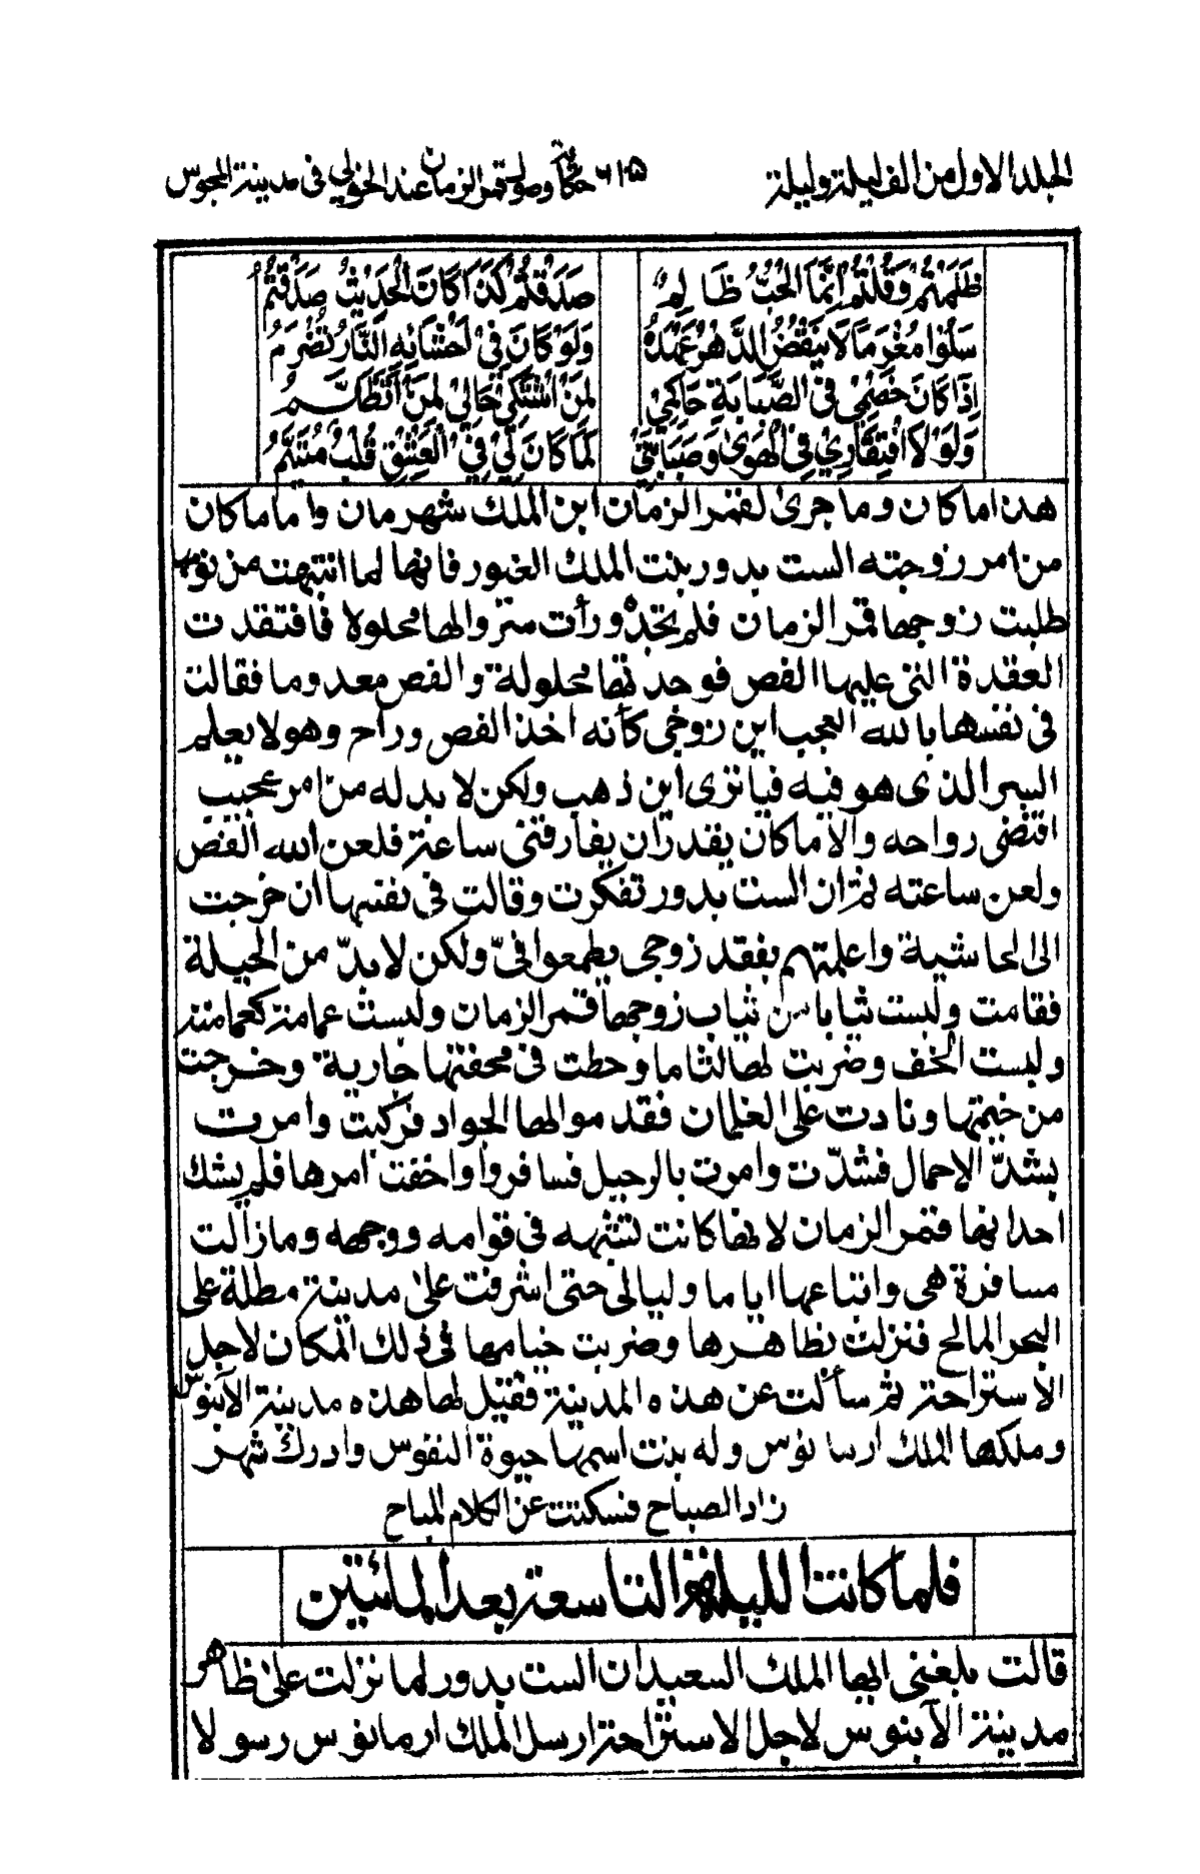 المجلد الاول من الف ليلة وليلة ٦١٥ حكاية وصول قمر الزمان عند الخولي فى مدينة المجوس
ظَلَمْتُمْ وَقُلْتُمْ اِنَّمَا الْحُبُّ ظَالِمٌ صَدَقْتُمْ كَذَا كَانَ الْحَدِيْثُ صَدَقْتُمُ
سَلُوْا مُغْرَمًا لَا يَنْقُضُ الدَّهْرُ عَهْدَهُ وَلَوْ كَانَ فِيْ اَحْشَائِهِ النَّارُ تُضْرَمُ
اِذَا كَانَ خَصْمِيْ فِى الصَّبَابَةِ حَاكِمِيْ لِمَنْ اَشْتَكِيْ حَالِيْ لِمَنْ اَتَظَلَّمُ
وَلَوْ لَا افْتِقَارِيْ فِى الْهَوٰى وَصَبَابَتِيْ لَمَا كَانَ لِيْ فِي الْعِشْقِ قَلْبٌ مُتَيَّمُ
هذا ما كان وما جرى لقمر الزمان ابن الملك شهرمان واما ما كان
من امر زوجته الست بدور بنت الملك الغيور فانها لما انتبهت من نومها
طلبت زوجها قمر الزمان فلم تجده ورأت سروالها محلولا فافتقدت
العقدة التى عليها الفص فوجدتها محلولة والفص معدوما فقالت
فى نفسها يا لله العجب اين زوجى كأنه اخذ الفص وراح وهو لا يعلم
السر الذى هو فيه فيا ترى اين ذهب ولكن لا بد له من امر عجيب
اقتضى رواحه والا ما كان يقدر ان يفارقنى ساعة فلعن الله الفص
ولعن ساعته ثم ان الست بدور تفكرت وقالت فى نفسها ان خرجت
الى الحاشية واعلمتهم بفقد زوجى يطمعوا فىّ ولكن لا بدّ من الحيلة
فقامت ولبست ثيابا من ثياب زوجها قمر الزمان ولبست عمامة كعمامته
ولبست الخف وضربت لها لثاما وحطت فى محفتها جارية وخرجت
من خيمتها ونادت على الغلمان فقدموا لها الجواد فركبت وامرت
بشدّ الاحمال فشدّت وامرت بالرحيل فسافروا واخفت امرها فلم يشك
احد انها قمر الزمان لانها كانت تشبهه فى قوامه ووجهه وما زالت
مسافرة هى واتباعها اياما وليالى حتى اشرفت على مدينة مطلة على
البحر المالح فنزلت بظاهرها وضربت خيامها فى ذلك المكان لاجل
الاستراحة ثم سألت عن هذه المدينة فقيل لها هذه مدينة الآبنوس
وملكها الملك ارمانوس وله بنت اسمها حيوة النفوس وادرك شهر
زاد الصباح فسكتت عن الكلام المباح
فلما كانت الليلة التاسعة بعد المائتين
قالت بلغنى ايها الملك السعيد ان الست بدور لما نزلت على ظاهر
مدينة الآبنوس لاجل الاستراحة ارسل الملك ارمانوس رسولا